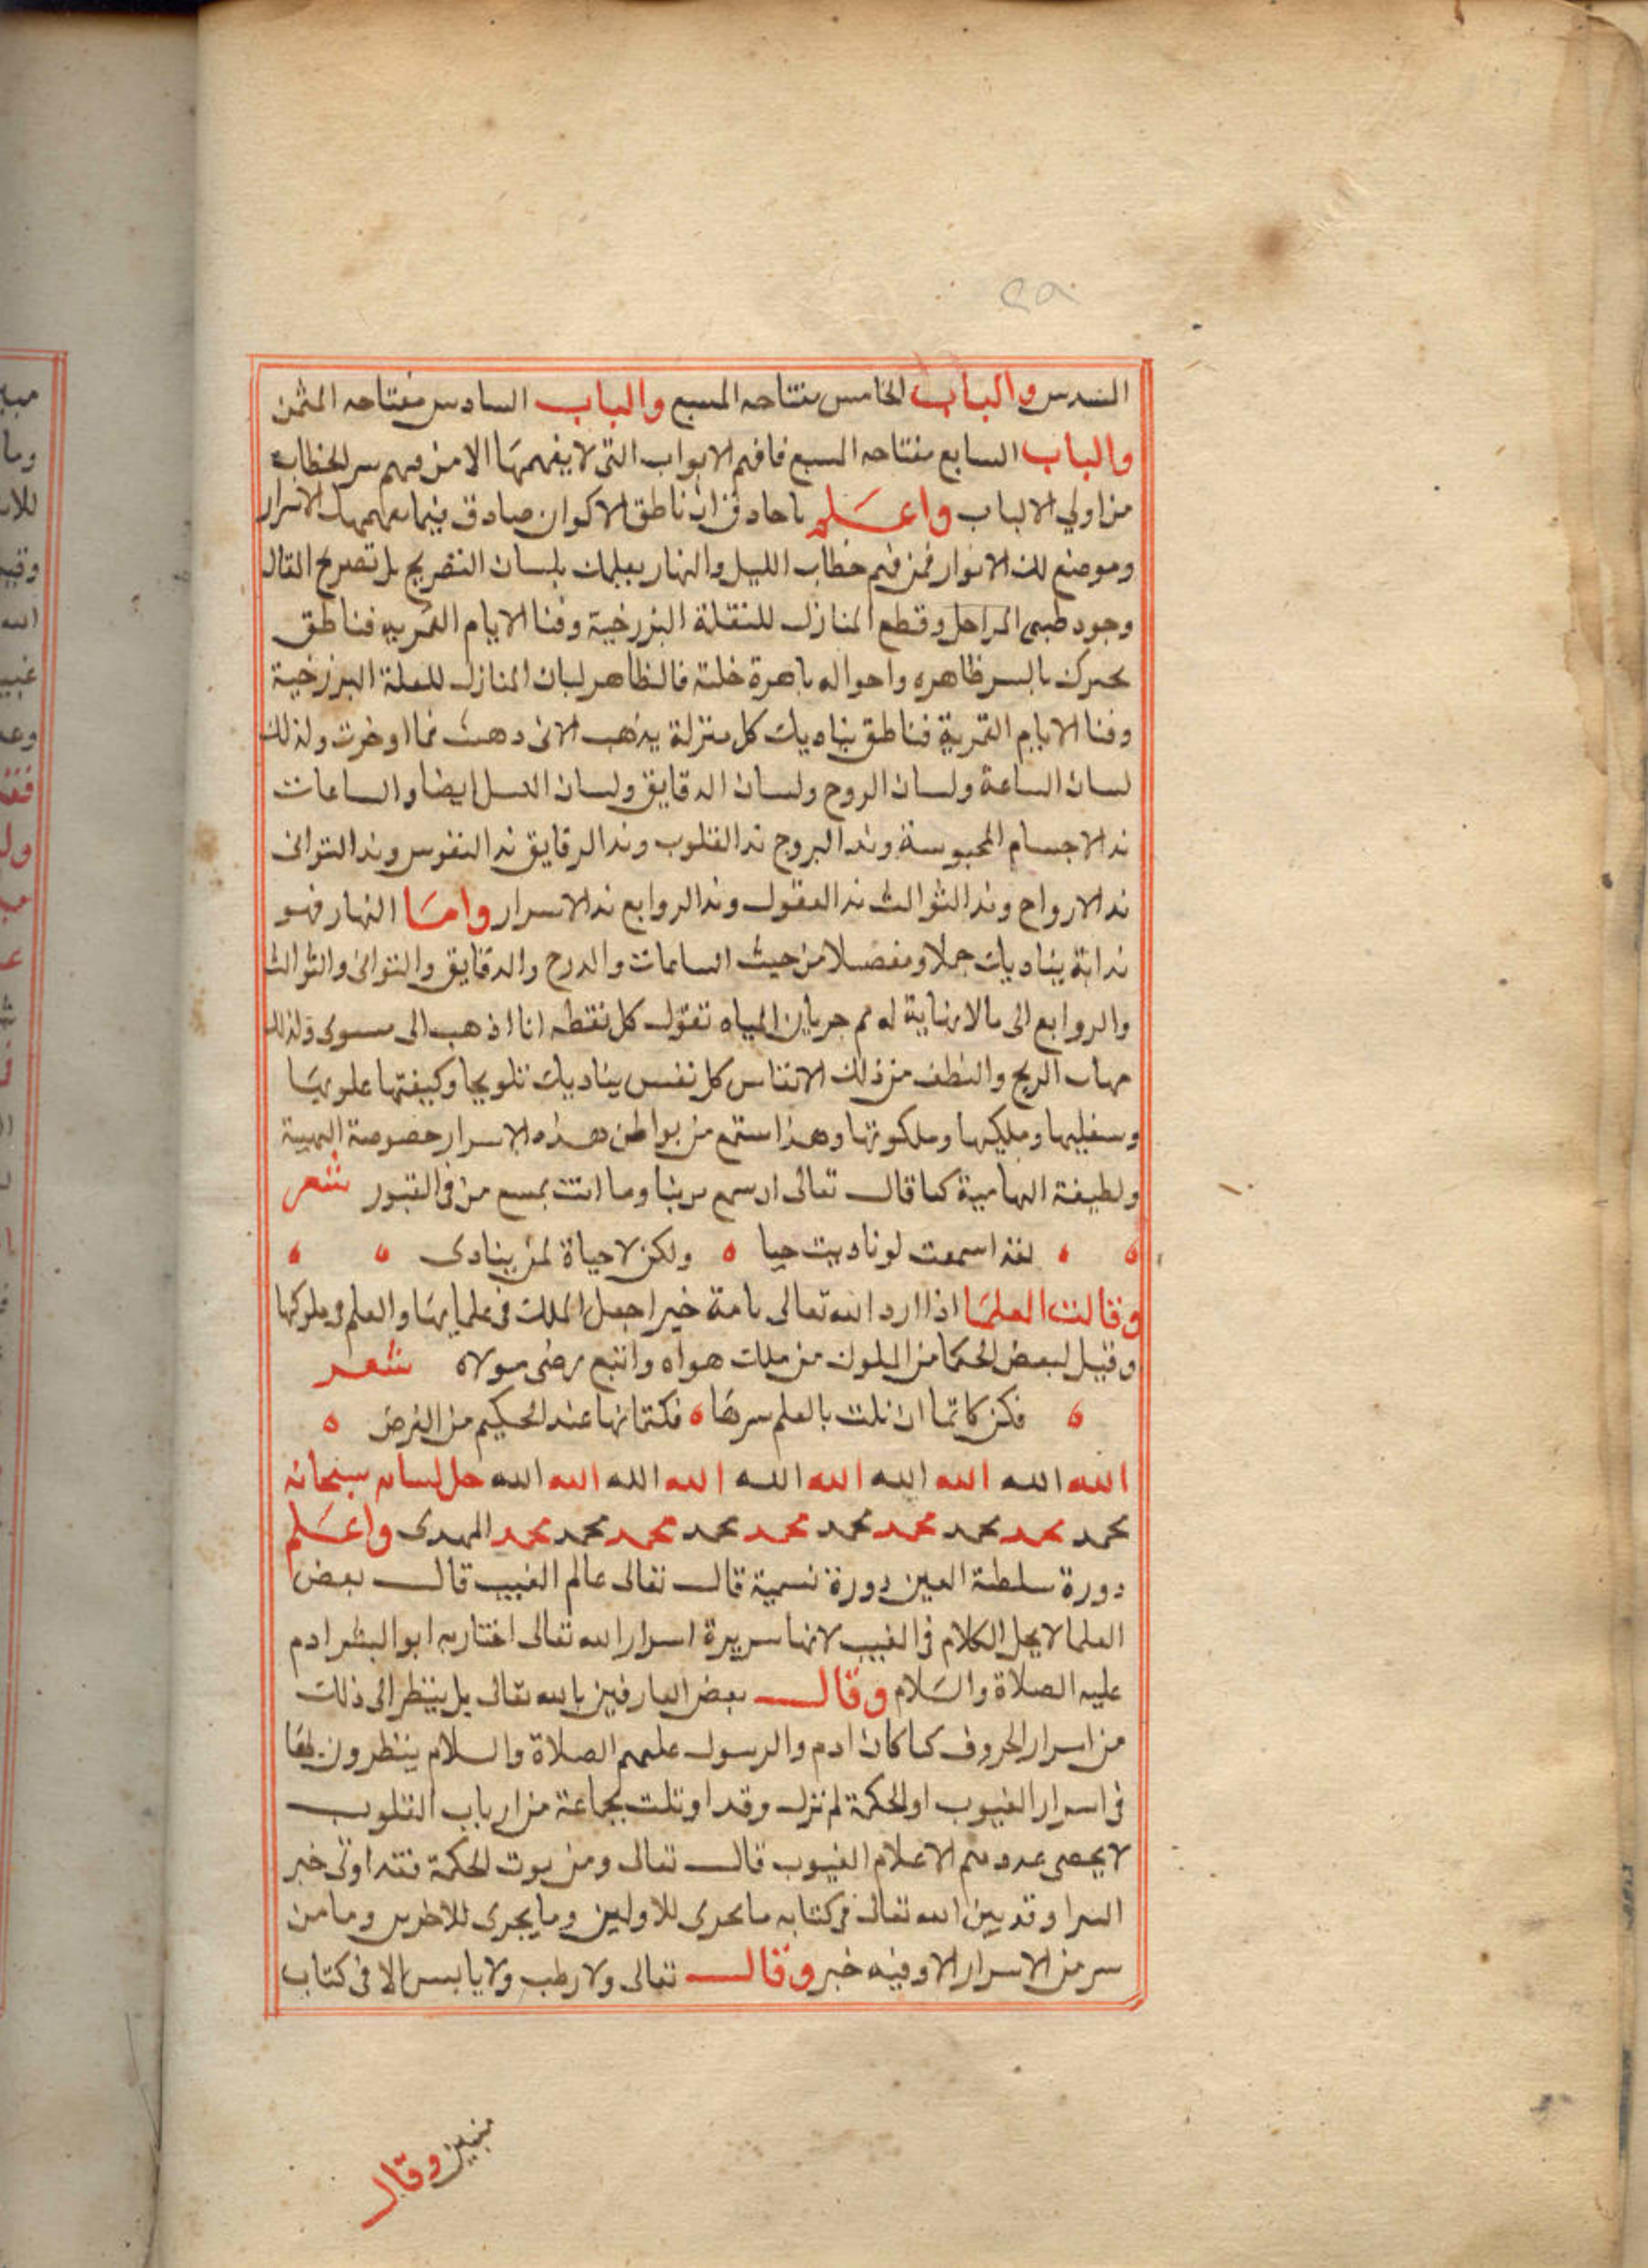 المسدس والباب الخامس مفتاحه المسبع والباب السادس مفتاحه المثمن
والباب السابع مفتاحه السبع فافهم الابواب التى لا يفهمها الا من فهم سر الخطاب
من اولي الالباب واعلم يا حادق ان ناطق الاكوان صادق فيما الاسرار
وموضع لك الانوار فمن فهم خطاب الليل والنهار بعلمك بلسان التصريح بل تصريح المقال
وجود طبى المراحل وقطع المنازل للنقلة البزرخية وفنا الايام القمريه فناطق
يحبرك بالسر ظاهره واحواله باهرة خلتة فالظاهر لبان المنازل للعلة البرزخية
وفنا الايام القمرية فناطق يناديك كل منزلة يذهب الانى دهبت فما اوخرت ولذلك
لسان الساعة ولسان الروح ولسان الدقايق ولسان الليل ايضا والساعات
ند الاجسام المحبوسة وند البروج ند القلوب وند الرقايق ند النفوس وند الثوانى
ند الارواح وند الثوالث ند العقول وند الروابع ند الاسرار واما النهار فهو
ندابة يناديك جملا ومفصلا من حيث الساعات والدرج والدقايق والثوانى والثوالث
والروابع الى مالا نهاية له ثم جريان المياه تقول كل نقطه انا اذهب الى سوى ولذلك
مهاب الريح والنطف من ذلك الانفاس كل نفس يناديك تلويحا وكيفتها علويها
وسفليها ومليكها وملكوتها وهذا ستمع من بواطن هذه الاسرار خصوصة الهيبة
ولطيفة الهامية كما قال تعالى ان سمع بربنا وما انت بمسمع من فى القبور شعر
لقد اسمعت لو ناديت حيا ولكن لا حياة لمن ينادى
وقالت العلما اذا ارد الله تعالى بامة خيرا جعل الملك فى علمايها والعلم فى ملوكها
وقيل لبعض الحكما من الملوك من ملك هواه واتبع رضى مولاه شعر
فكن كاتما ان نلت بالعلم سرها فكتمانها عند الحكيم من الفرض
الله الله الله الله الله الله الله الله الله الله حل لسانه سبحانه
محمد محمد محمد محمد محمد محمد محمد محمد محمد المهدى واعلم
دورة سلطنة العين دورة نسمية قال تعالى عالم الغيب قال بعض
العلما لا يحل الكلام فى الغيب لانها سريرة اسرار الله تعالى اختار به ابو البشر ادم
عليه الصلاة والسلام وقال بعض العارفين بالله تعالى بل ينظر الى ذلك
من اسرار الحروف كما كان ادم والرسول عليهم الصلاة والسلام ينظرون بها
فى اسرار الغيوب اولحكمة لم نزل وقد اوتلت بجماعة من ارباب القلوب
لا يحصى عددهم الا علام الغيوب قال تعالى ومن يوت الحكمة فقد اوتى خير
السرا وقد بين الله تعالى فى كتابه ما يجرى للاولين وما يجرى للاخرين وما من
سر من الاسرار الا وفيه خبر وقال تعالى ولا رطب ولا يابس الا فى كتاب
مبين وقال